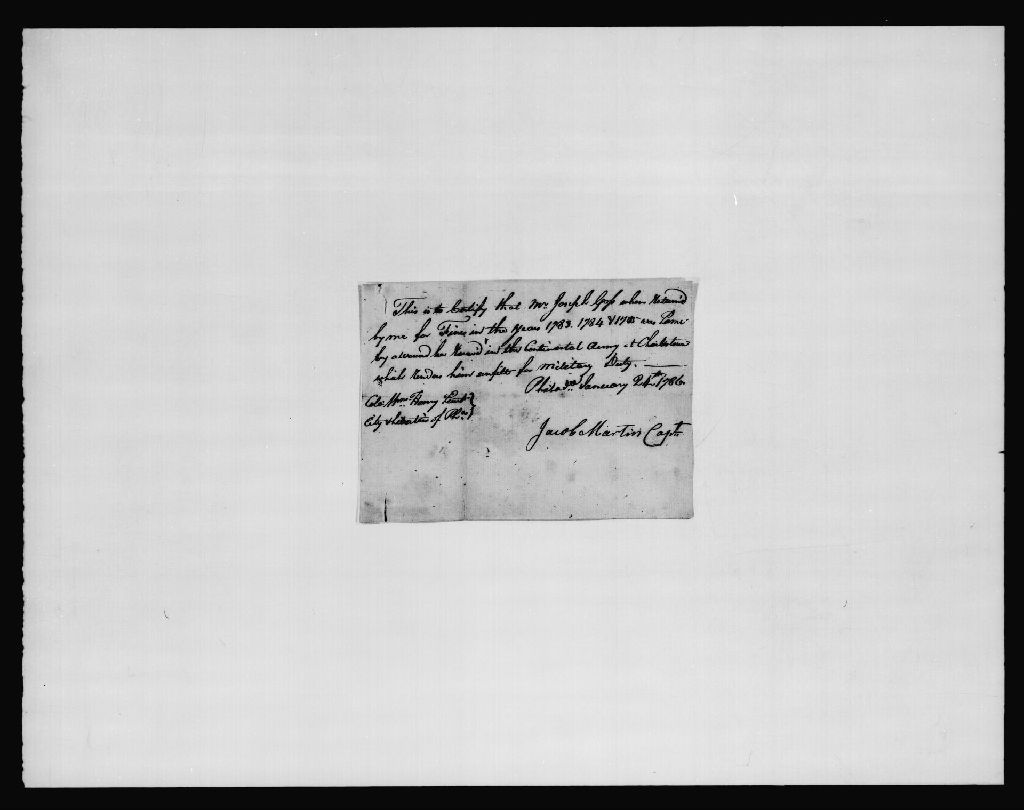 This is to Certify that Mr. Joseph Goss when Returned
by me for Fines in the Years 1783. 1784 & 1785 was Lame
by a wound he Receiv'd in the Continental Army at
which Renders him unfit for Military Duty.
Philada. January 24th 1786.
Colo. Wm. Henry
City & of Pha.
Jacob Martin Capt.